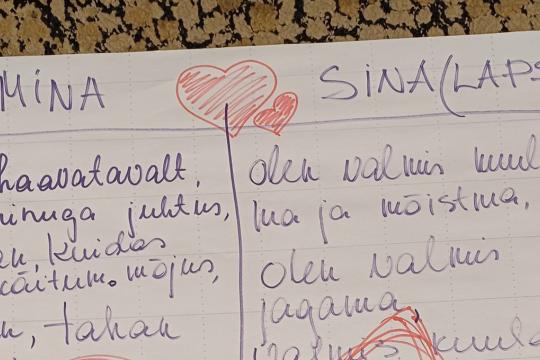 MINA
SINA (LAPS
haavatavalt,
minuga juhtus,
en, kuidas
käitum. mõjus,
n, tahan
olen valmis kuul
ma ja mõistma,
olen valmis
jagama,
valmis kuula